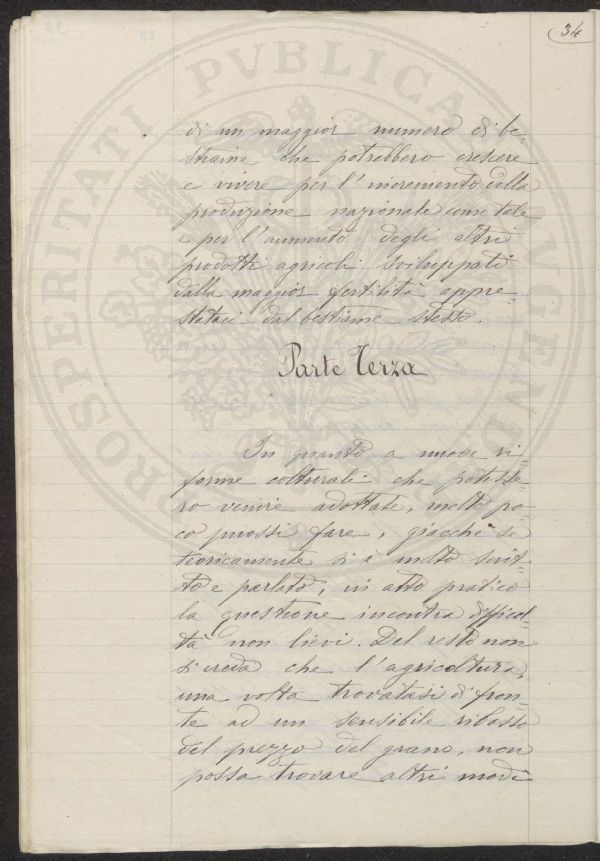 34
di un maggior numero di be-
stiame che potrebbero crescere
e vivere per l'incremento della
produzione nazionale come tale
e per l'aumento degli altri
prodotti agricoli sviluppati
dalla maggior fertilità appre-
stataci dal bestiame stesso.
Parte Terza
In quanto a nuove ri-
forme colturali che potesse-
ro venire adottate, molto po-
co puossi fare, giacchè se
teoricamente si è molto scrit-
to e parlato, in atto pratico
la questione incontra difficol-
tà non lievi. Del resto non
si creda che l'agricoltura,
una volta trovatasi di fron-
te ad un sensibile ribasso
del prezzo del grano, non
possa trovare altri modi
PROSPERITATI PVBLICAE AVGENDAE